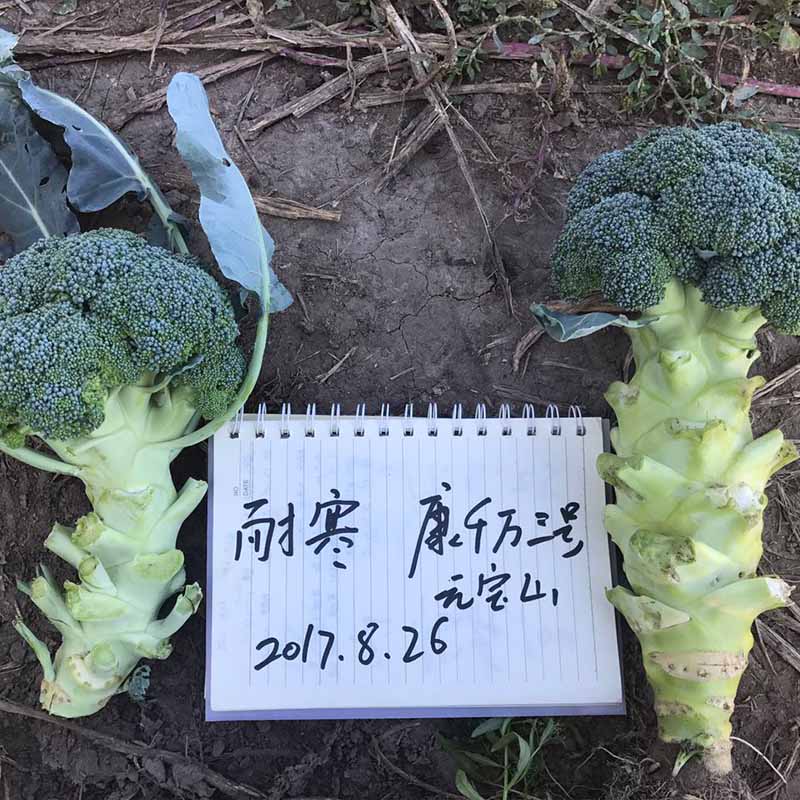 耐寒 康千万三号
元宝山
2017.8.26
NO.
DATE